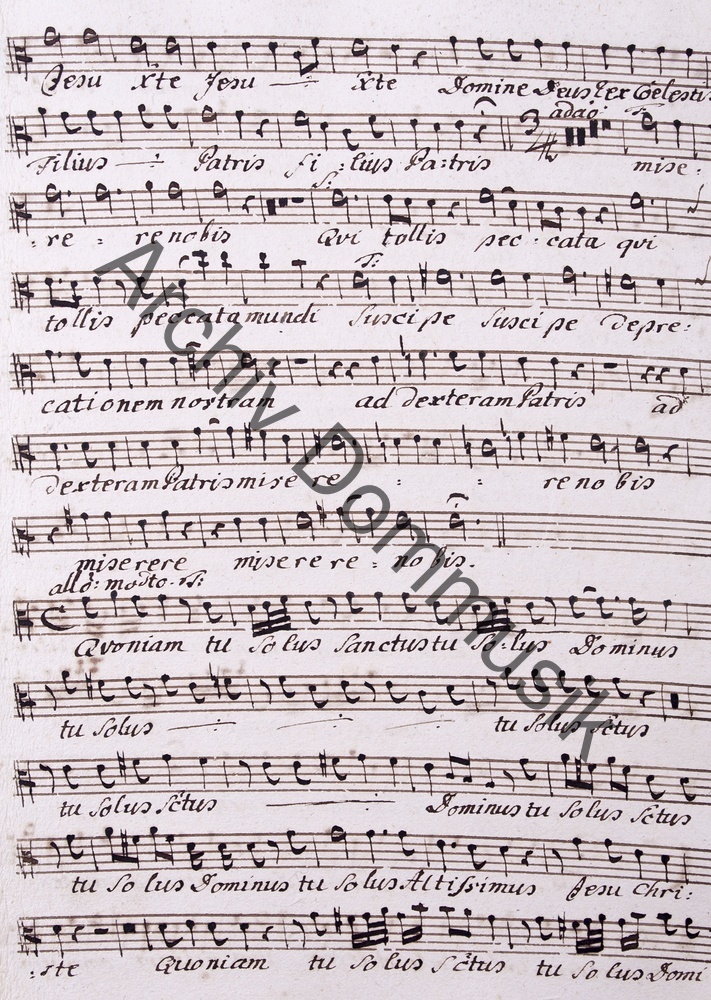 Jesu Xte Jesu Xte Domine Deus Rex Coelestis
adao: T:
Filius Patris fi:lius Pa:tris mise:
S:
:re : re nobis Qvi tollis pec:cata qvi
T:
tollis peccata mundi Suscipe Suscipe depre:
cationem nostram ad dexteram Patris ad
dexteram Patris mise re : : re nobis
miserere miserere re : nobis.
allo: modto. T:
Qvoniam tu Solus Sanctus tu So:lus Dominus
tu Solus tu Solus Sctus
tu Solus Sctus Dominus tu Solus Sctus
tu So lus Dominus tu Solus Altissimus Jesu Chri:
:ste Quoniam tu So lus Sctus tu So lus Domi
Archiv Dommusik